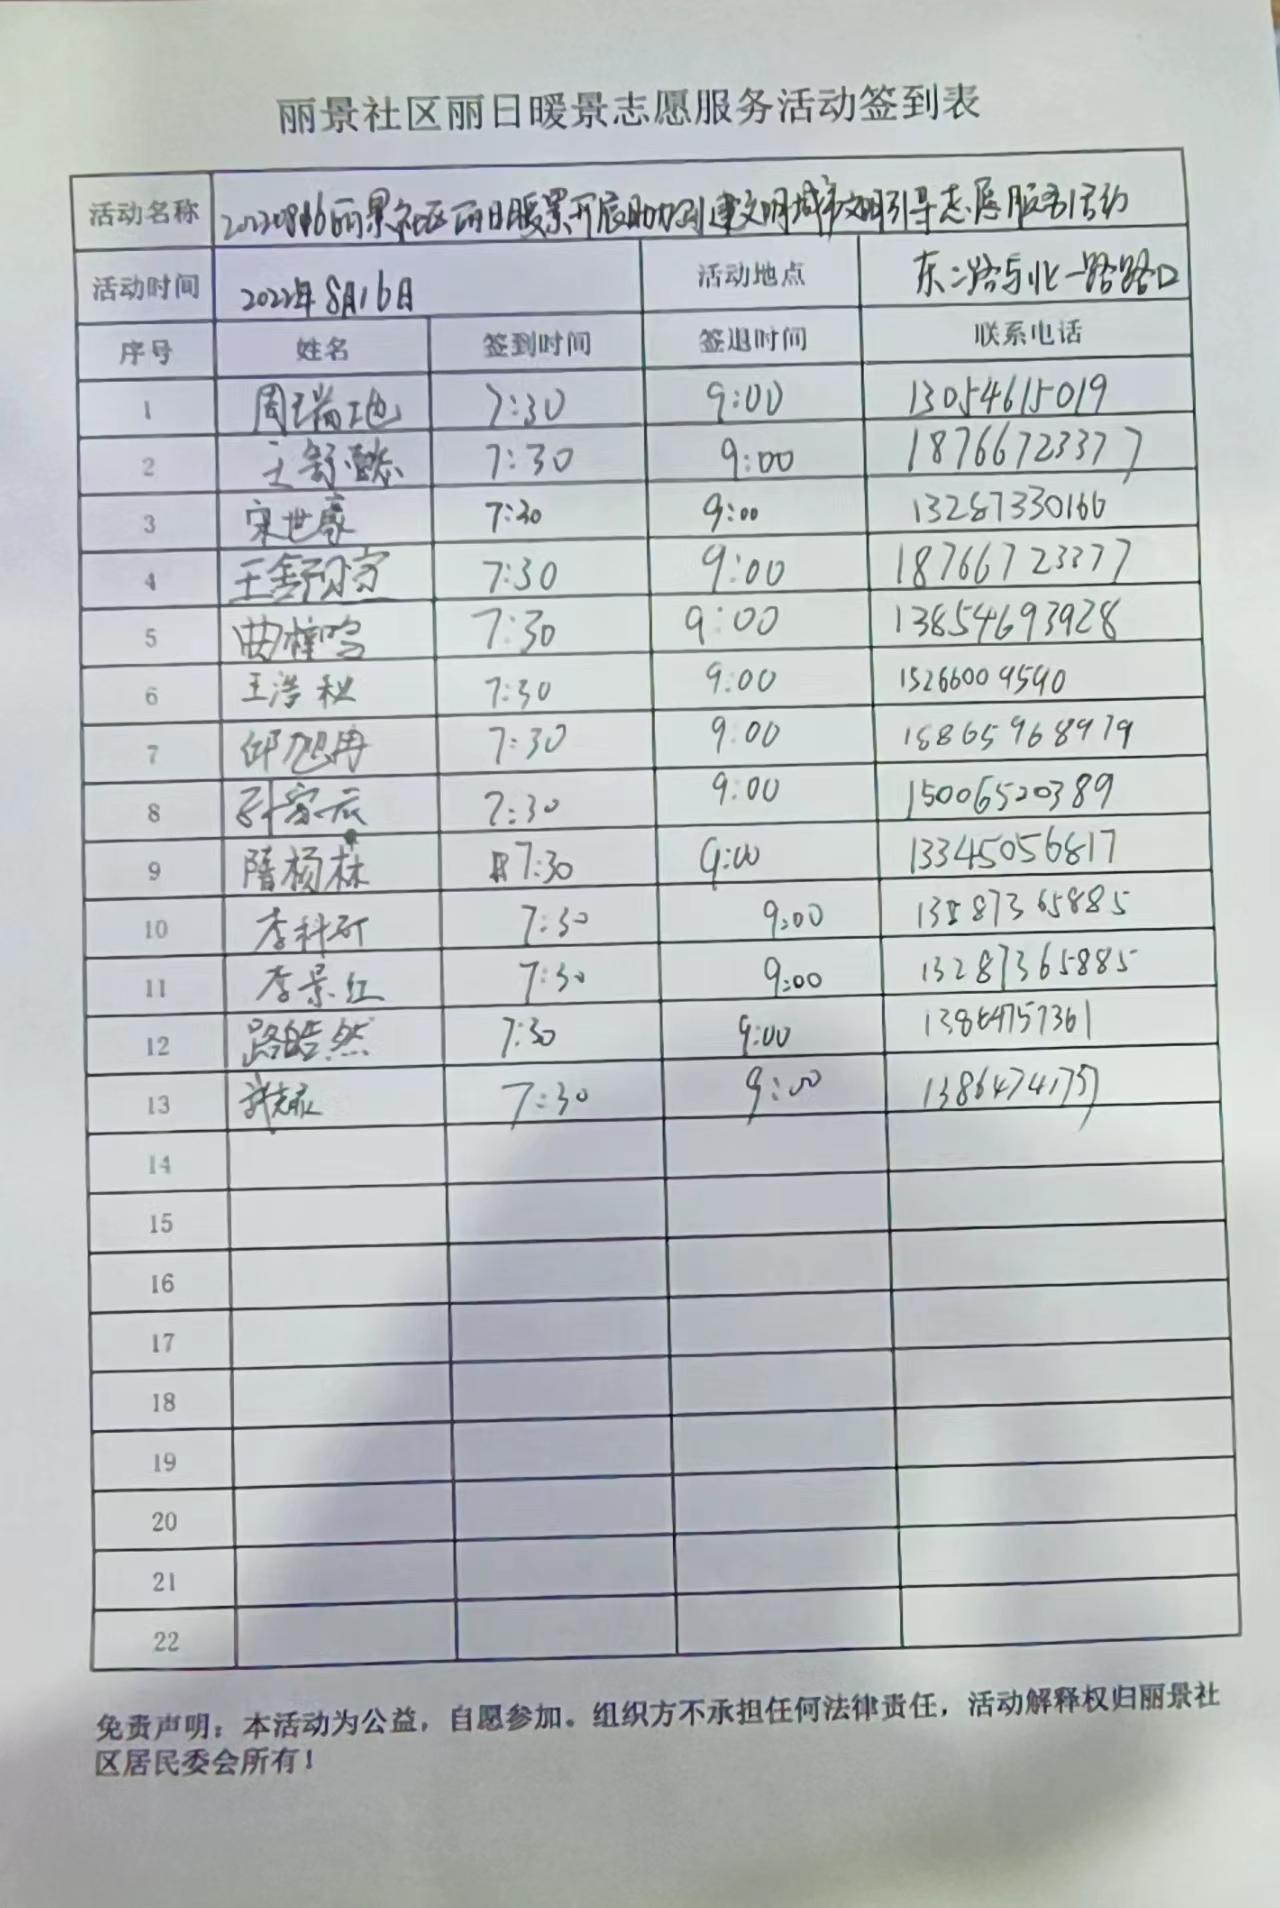 丽景社区丽日暖景志愿服务活动签到表
活动名称 20220816丽景社区丽日暖景开展助力创建文明城市文明引导志愿服务活动
活动时间 2022年8月16日 活动地点 东二路与北一路路口
序号 姓名 签到时间 签退时间 联系电话
1 周瑞 7:30 9:00 13054615019
2 王舒懿 7:30 9:00 18766723377
3 宋世豪 7:30 9:00 13287330166
4 王舒 7:30 9:00 18766723377
5 曲梓鸣 7:30 9:00 13854693928
6 王浩秋 7:30 9:00 15266009590
7 邱旭冉 7:30 9:00 15865968979
8 家辰 7:30 9:00 15006520389
9 隋杨林 7:30 9:00 13345056817
10 李科 7:30 9:00 13287365885
11 李景红 7:30 9:00 13287365885
12 路皓然 7:30 9:00 13864757361
13 7:30 9:00 13864741757
14
15
16
17
18
19
20
21
22
免责声明：本活动为公益，自愿参加。组织方不承担任何法律责任，活动解释权归丽景社
区居民委会所有！